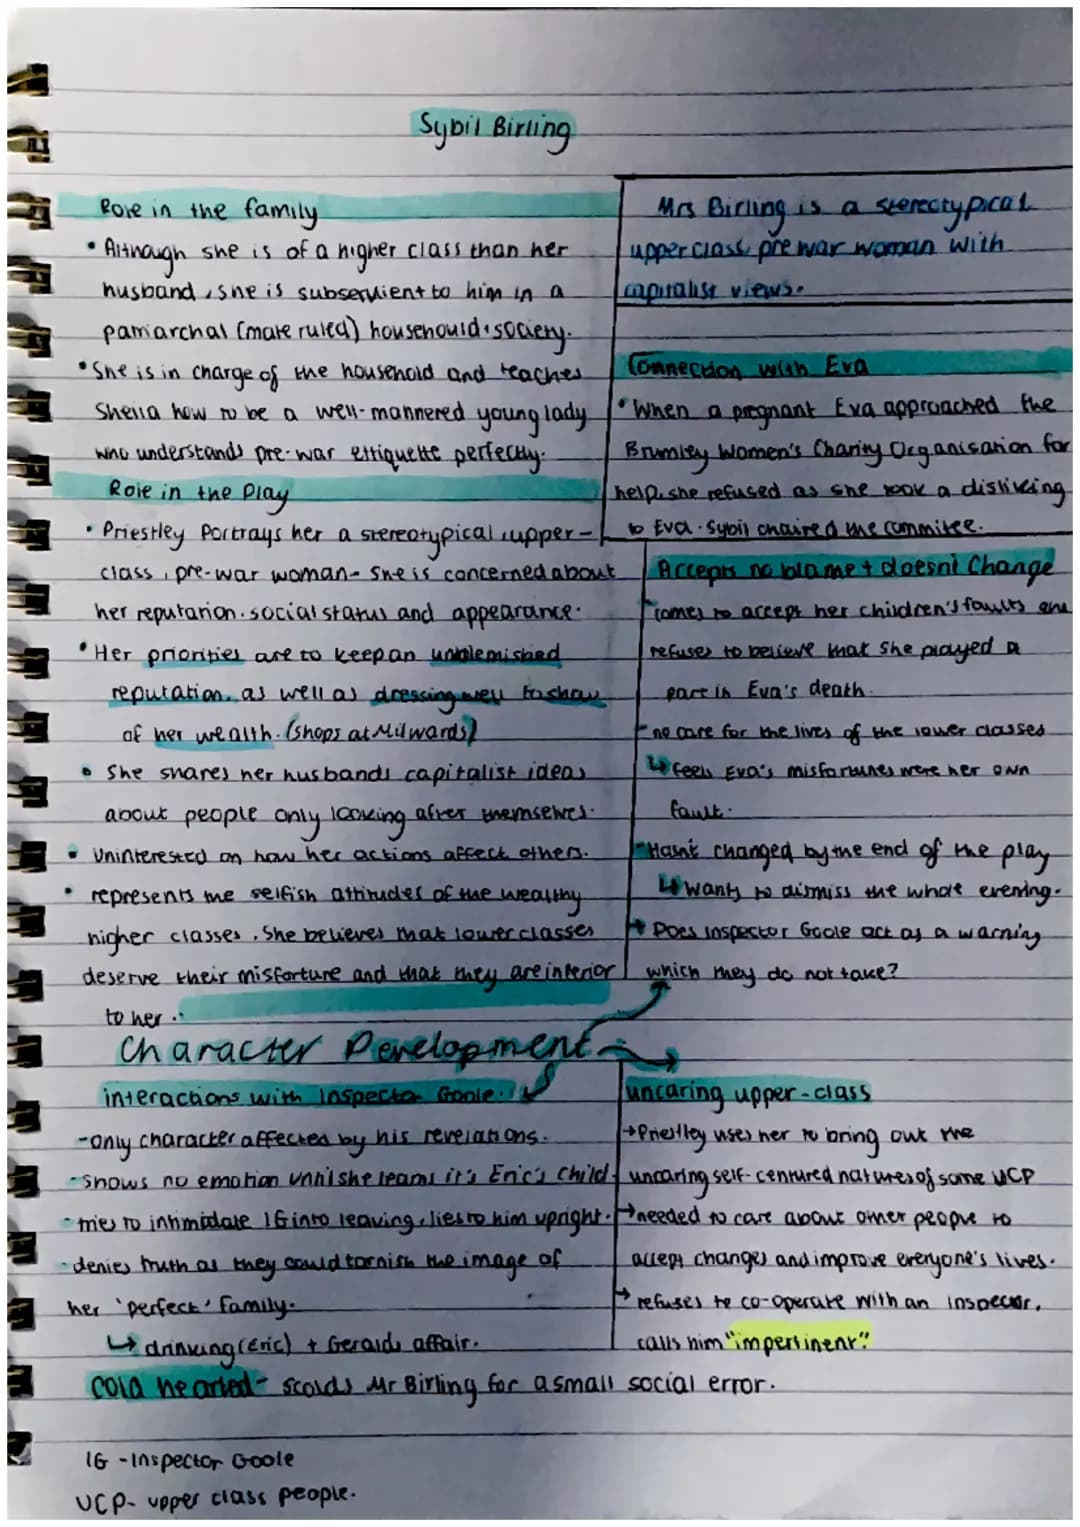 Sybil Birling
Role in the family
• Although she is of a higher class than her
husband, she is subservient to him in a
patriarchal (male ruled) househould + society.
• She is in charge of the household and teaches
Sheila how to be a well-mannered young lady
who understands pre-war ettiquette perfectly.
Role in the Play
• Priestley Portrays her a stereotypical, upper-
class, pre-war woman - She is concerned about
her reputation, social status and appearance.
• Her priorities are to keep an unblemished
reputation, as well as dressing well to show
of her wealth. (Shops at Milwards)
• She shares her husbands capitalist ideas
about people only looking after themselves.
• Uninterested on how her actions affect others.
• represents the selfish attitudes of the wealthy
higher classes. She believes that lower classes
deserve their misforture and that they are inferior
to her.
Mrs Birling is a stereotypical
upper class, pre war woman with
capitalist views.
Connection with Eva
• When a pregnant Eva approached the
Brumley Women's Charity Organisation for
help, she refused as she took a disliking
to Eva. Sybil chaired the commitee.
Accepts no blame + doesnt Change
comes to accept her children's faults and
refuses to believe that she played a
part in Eva's death.
- no care for the lives of the lower classes
↳ feels Eva's misfortunes were her own
fault.
- Hasn't changed by the end of the play
↳ wants to dismiss the whole evening.
→ Does Inspector Goole act as a warning
which they do not take?
Character Development
interactions with Inspector Goole.
- only character affected by his revelations.
- shows no emotion until she learns it's Eric's Child
- tries to intimidate IG into leaving, lies to him upright.
- denies truth as they could tarnish the image of
her 'perfect' family.
↳ drinking (Eric) + Geralds affair.
Cold hearted - scolds Mr Birling for a small social error.
uncaring upper-class
→ Priestley uses her to bring out the
uncaring self-centured natures of some UCP
→ needed to care about other people to
accept changes and improve everyone's lives.
→ refuses to co-operate with an inspector,
calls him "impertinent".
IG - Inspector Goole
UCP - upper class people.